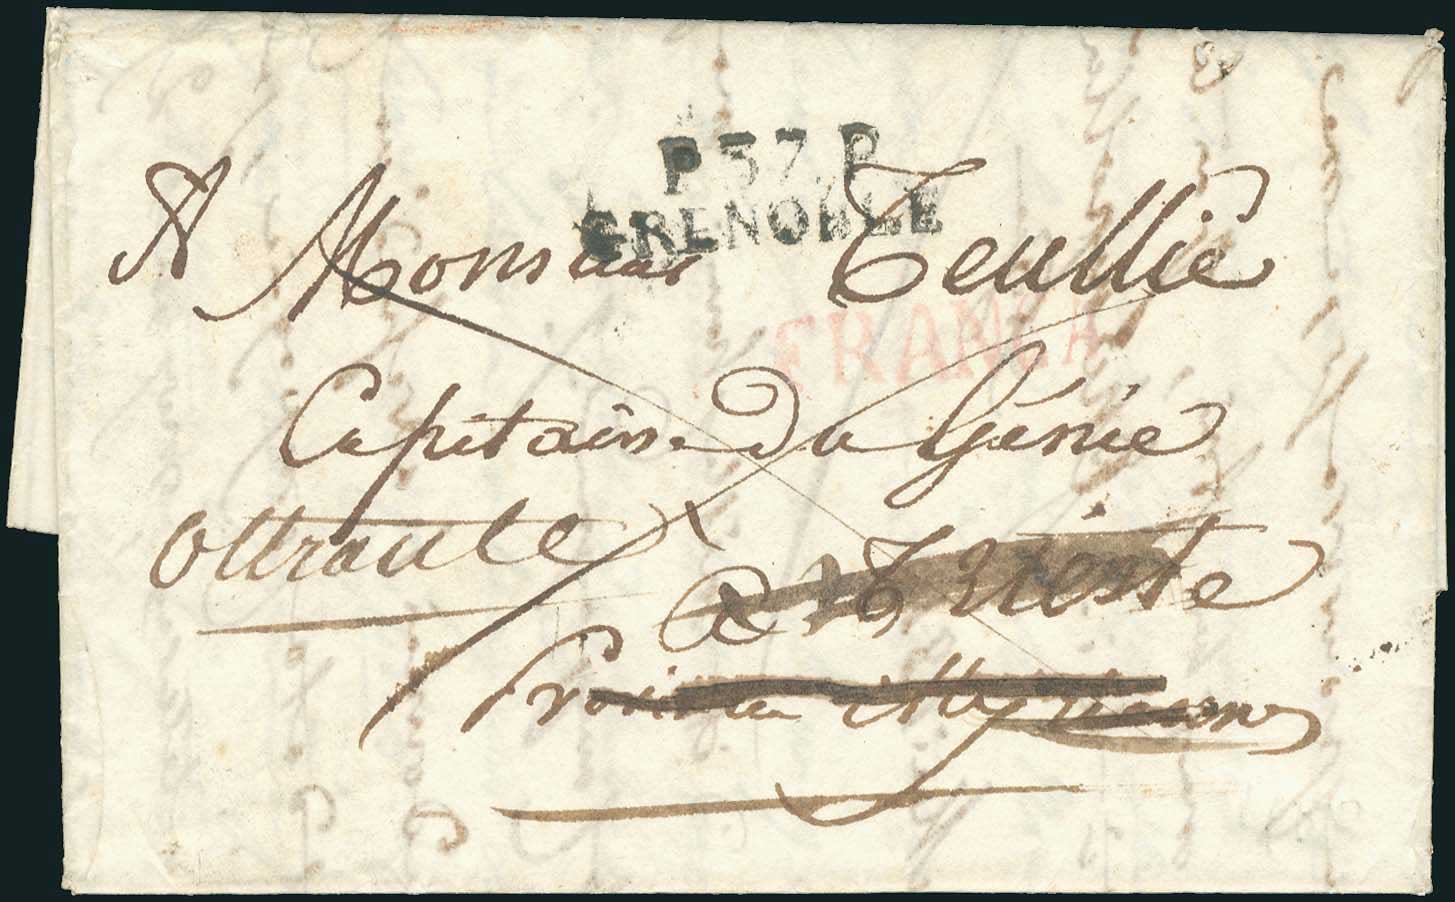 P.37.P.
GRENOBLE
A Monsieur Teullié
FRANCA
Capitaine du Génie
Ottrante
a Trieste